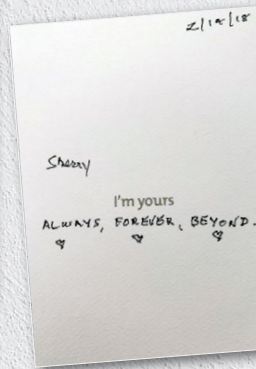 2/14/18
Sherry
I'm yours
ALWAYS, FOREVER, BEYOND.